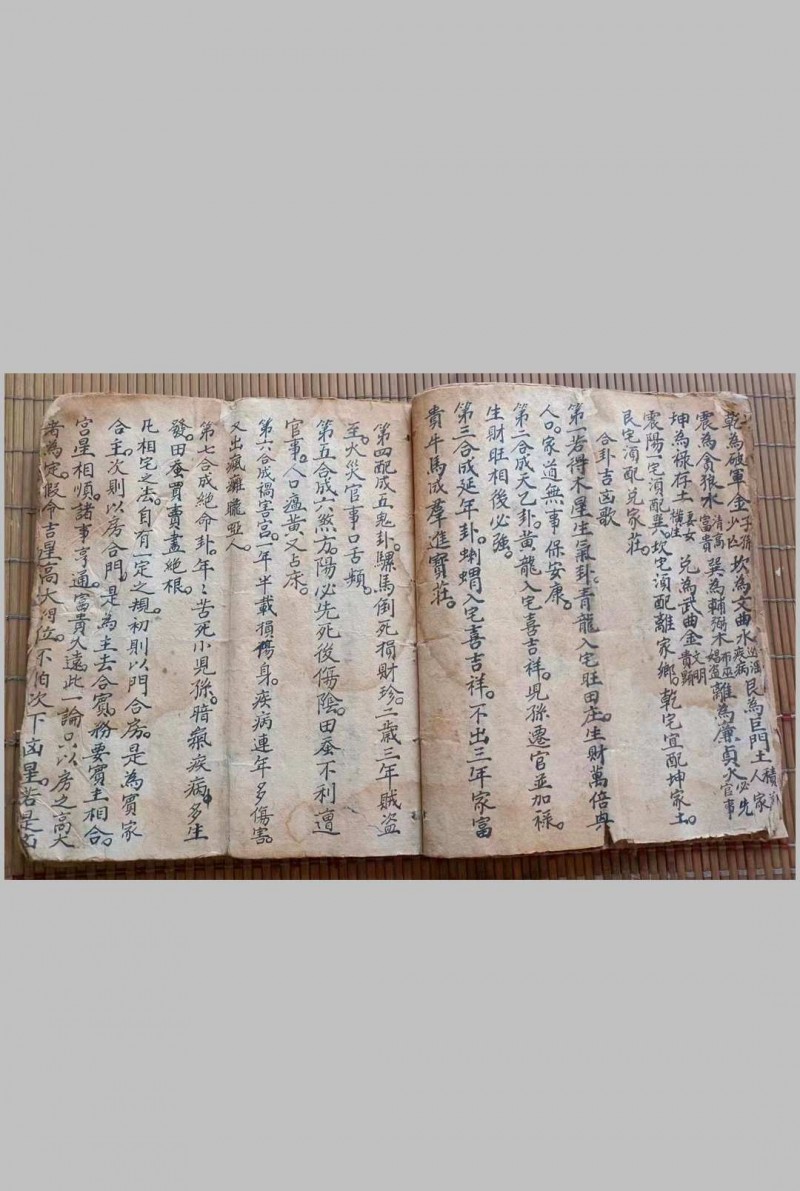 乾為破軍金子孫少凶坎為文曲水疾病艮為巨門土積
震為貪狼水清高富貴巽為輔弼木離為廉貞火官事必先
坤為祿存土妻女橫生兌為武曲金文明貴顯
震陽一宅須配巽。坎宅須配離家鄉。乾宅宜配坤家土。
艮宅須配兌家莊。
合卦吉凶歌
第一若得木星生氣卦。青龍入宅旺田庄。生財萬倍興
人口。家道無事保安康。
第二合成天乙卦。黃龍入宅喜吉祥。児孫遷官並加祿。
生財旺相後必強。
第三合成延年卦。蝌蝟入宅喜吉祥。不出三年家富
貴牛馬成羣進寶莊。
第四配成五鬼卦。騾馬倒死損財珍。二歲三年賊盜
至。火災官事口舌頻。
第五合成六煞方。陽必先死後傷陰。田蚕不利遭
官事。人口瘟黃又占床。
第六合成禍害宮。一年半載損傷身。疾病連年多傷害。
又出瘋癱聾啞人。
第七合成絕命卦。年〻苦死小児孫。暗氣疾病多生
發。田蚕買賣盡絕根。
凡相宅之法。自有一定之規。初則以門合房。是為賓家
合主。次則以房合門。是為主去合賓。務要賓主相合。
宮星相順。諸事亨通。富貴久遠此一論只以房之高大
者為定。假令吉星高大得位。不怕次下凶星。若是